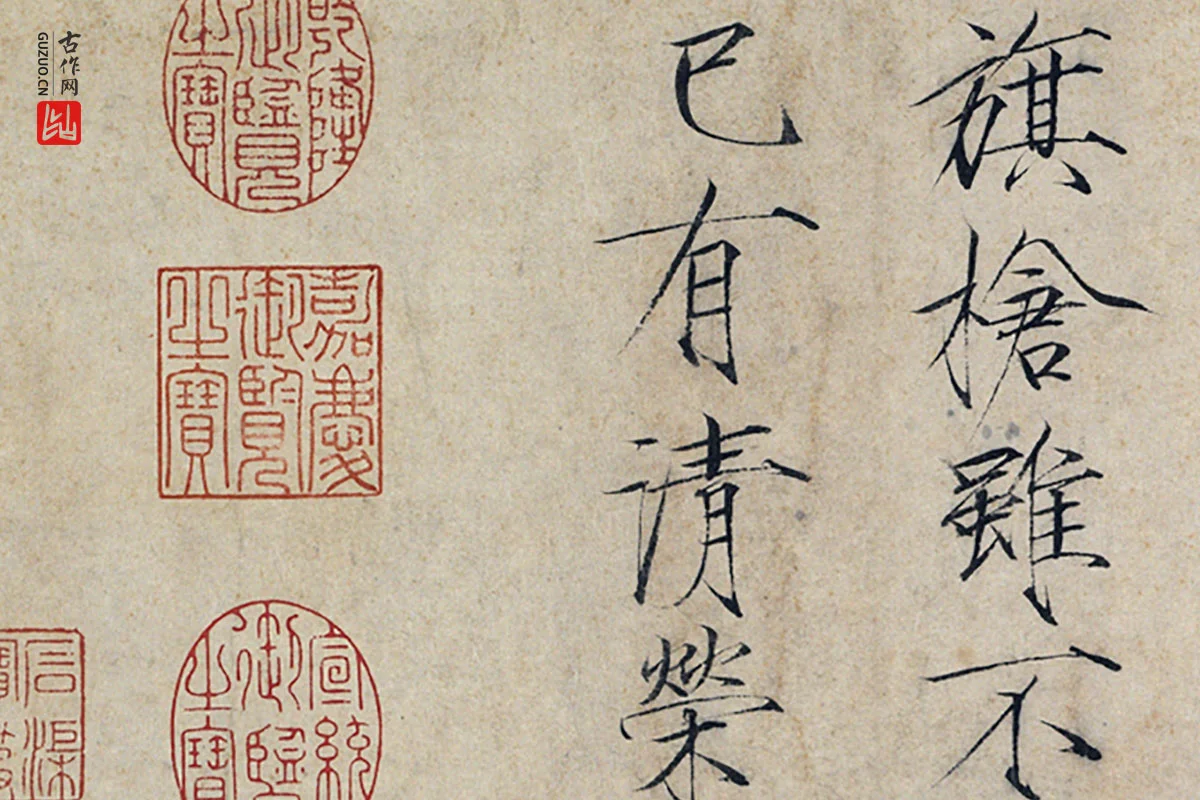 旗槍雖不
已有清榮
乾隆御覽之寶
嘉慶御覽之寶
宣統御覽之寶
古作网
GUZUO.CN